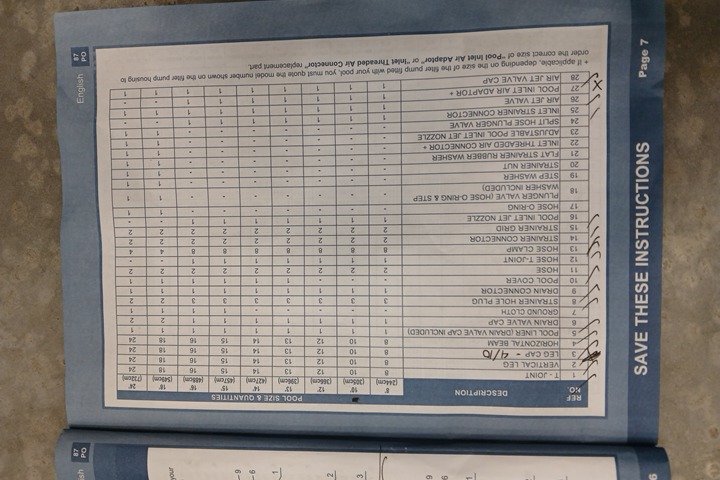 English 87 PO
POOL SIZE & QUANTITIES
REF. NO. DESCRIPTION 8' (244cm) 10' (305cm) 12' (366cm) 13' (396cm) 14' (427cm) 15' (457cm) 16' (488cm) 18' (549cm) 24' (732cm)
1 T - JOINT 8 10 12 13 14 15 16 18 24
2 VERTICAL LEG 8 10 12 13 14 15 16 18 24
3 LEG CAP - 4/10 8 10 12 13 14 15 16 18 24
4 HORIZONTAL BEAM 8 10 12 13 14 15 16 18 24
5 POOL LINER (DRAIN VALVE CAP INCLUDED) 1 1 1 1 1 1 1 1 1
6 DRAIN VALVE CAP
7 GROUND CLOTH
8 STRAINER HOLE PLUG 3 3 3 3 3 3 3 2 2
9 DRAIN CONNECTOR 1 1 1 1 1 1 1 1 1
10 POOL COVER 1 1 1 1 1 1 1 1 1
11 HOSE 2 2 2 2 2 2 2 2 2
12 HOSE T-JOINT 1 1 1 1 1 1 1 - -
13 HOSE CLAMP 8 8 8 8 8 8 8 4 4
14 STRAINER CONNECTOR 2 2 2 2 2 2 2 2 2
15 STRAINER GRID 2 2 2 2 2 2 2 2 2
16 POOL INLET JET NOZZLE 1 1 1 1 1 1 1 - -
17 HOSE O-RING - - - - - - - 1 1
18 PLUNGER VALVE (HOSE O-RING & STEP WASHER INCLUDED) - - - - - - - 1 1
19 STEP WASHER - - - - - - - 1 1
20 STRAINER NUT - - - - - - - 1 1
21 FLAT STRAINER RUBBER WASHER - - - - - - - 1 1
22 INLET THREADED AIR CONNECTOR + - - - - - - - 1 1
23 ADJUSTABLE POOL INLET JET NOZZLE - - - - - - - 1 1
24 SPLIT HOSE PLUNGER VALVE
25 INLET STRAINER CONNECTOR
26 AIR JET VALVE
27 POOL INLET AIR ADAPTOR +
28 AIR JET VALVE CAP 1 1 1 1 1 1 1 1 1
+ If applicable, depending on the size of the filter pump fitted with your pool, you must quote the model number shown on the filter pump housing to
order the correct size of "Pool Inlet Air Adaptor" or "Inlet Threaded Air Connector" replacement part.
SAVE THESE INSTRUCTIONS
Page 7